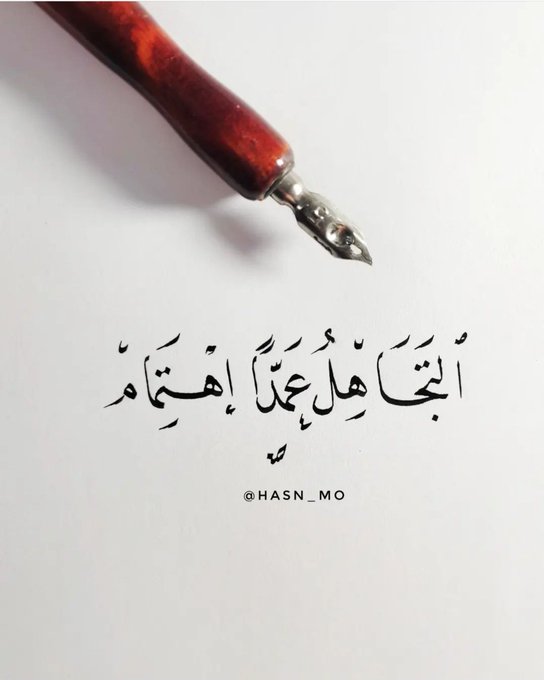 ٱلتَجَاهِلُ عَمَدّاً إهْتِمَامّ
@HASN_MO